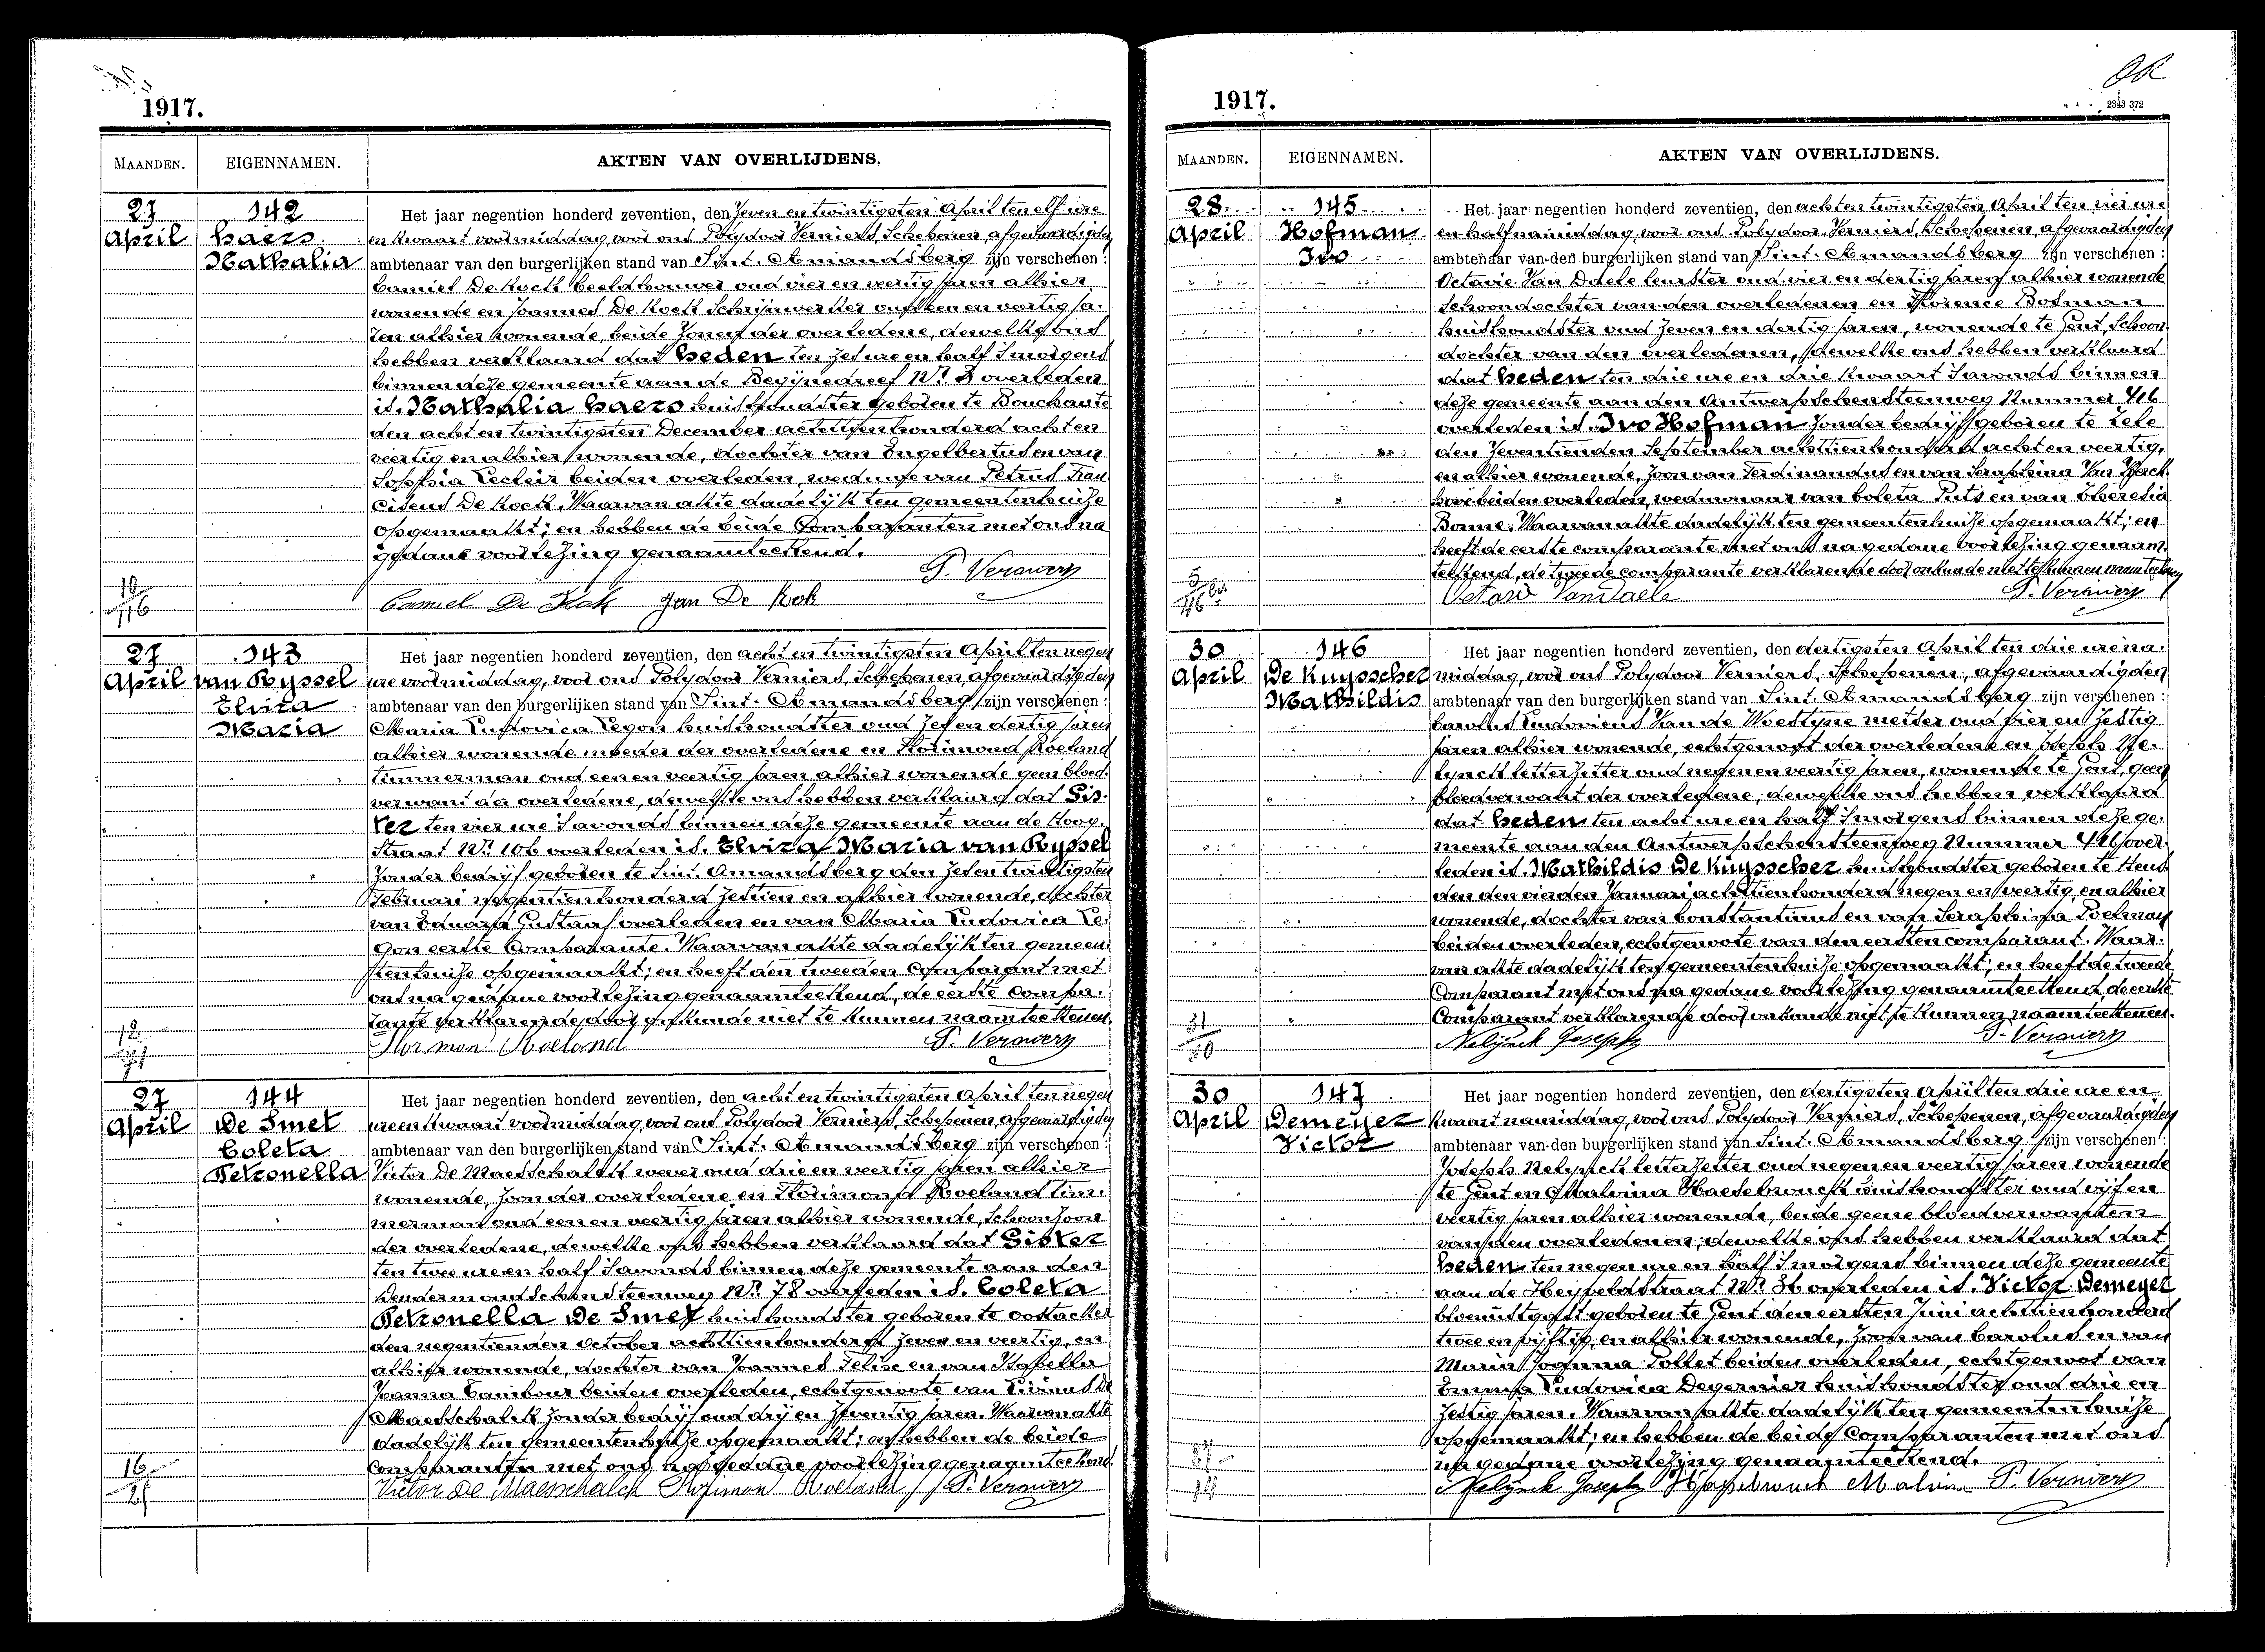 1917.
MAANDEN. EIGENNAMEN. AKTEN VAN OVERLIJDENS.
27 April
142
Haers
Nathalia
Het jaar negentien honderd zeventien, den zeven en twintigsten April ten elf ure
en kwaart voormiddag, voor ons Polydoor Verniers, Schepenen, afgevaardigden
ambtenaar van den burgerlijken stand van Sint-Amandsberg zijn verschenen :
Camiel De Kock beeldhouwer oud vier en veertig jaren alhier
wonende en Joannes De Kock Schrijnwerker oud en veertig ja-
ren alhier wonende, beide zonen der overledene, dewelke ons
hebben verklaard dat heden ten zes ure en half smorgens
binnen deze gemeente aan de Begijnedreef Nr 3 overleden
is. Nathalia Haers huishoudster geboren te Bouchaute
den acht en twintigsten December achttienhonderd acht en
veertig en alhier wonende, dochter van Engelbertus en van
Sophia beiden overleden, weduwe van Petrus Fran
ciscus De Kock. Waarvan akte dadelijk ten gemeentenhuize
opgemaakt; en hebben de beide Comparanten met ons na
gedane voorlezing genaamteekend.
P. Verniers
Camiel De Kock Jan De Kock
27 April
143
van Ryssel
Elvira
Maria
Het jaar negentien honderd zeventien, den acht en twintigsten April ten negen
ure voormiddag, voor ons Polydoor Verniers, Schepenen afgevaardigden
ambtenaar van den burgerlijken stand van Sint-Amandsberg zijn verschenen :
Maria Ludovica Legon huishoudster oud zes en dertig jaren
alhier wonende moeder der overledene en Florimond Roeland
timmerman oud een en veertig jaren alhier wonende geen bloed-
verwant der overledene, dewelke ons hebben verklaard dat Gis-
ter ten vier ure savonds binnen deze gemeente aan de Hoog-
straat Nr 106 overleden is. Elvira Maria van Ryssel
zonder bedrijf geboren te Sint-Amandsberg den zes en twintigsten
Februari negentienhonderd zestien en alhier wonende, dochter
van Eduard Gustaaf overleden en van Maria Ludovica Le-
gon eerste Comparante. Waarvan akte dadelijk ten gemeen-
tenhuize opgemaakt; en heeft den tweeden Comparant met
ons na gedane voorlezing genaamteekend, de eerste Compa-
rante verklarende door onkunde niet te kunnen naamteekenen.
Florimon Roeland P. Verniers
27 April
144
De Smet
Coleta
Petronella
Het jaar negentien honderd zeventien, den acht en twintigsten April ten negen
ure en kwaart voormiddag, voor ons Polydoor Verniers, Schepenen, afgevaardigden
ambtenaar van den burgerlijken stand van Sint-Amandsberg zijn verschenen :
Victor De Maesschalck wever oud drie en veertig jaren alhier
wonende, zoon der overledene en Florimond Roeland tim-
merman oud een en veertig jaren alhier wonende, schoonzoon
der overledene, dewelke ons hebben verklaard dat Gister
ten twee ure en half savonds binnen deze gemeente aan den
Dendermondschensteenweg Nr 78 overleden is. Coleta
Petronella De Smet huishoudster geboren te Oostacker
den negentienden October achttienhonderd zeven en veertig, en
alhier wonende, dochter van Joannes Felix en van Isabella
Joanna beiden overleden, echtgenoote van Livinus De
Maesschalck zonder bedrijf oud drij en zeventig jaren. Waarvan akte
dadelijk ten gemeentenhuize opgemaakt; en hebben de beide
Comparanten met ons na gedane voorlezing genaamteekend.
Victor De Maesschalck Florimon Roeland P. Verniers
1917.
MAANDEN. EIGENNAMEN. AKTEN VAN OVERLIJDENS.
28 April
145
Hofman
Ivo
Het jaar negentien honderd zeventien, den acht en twintigsten April ten vier ure
en half namiddag, voor ons Polydoor Verniers, Schepenen, afgevaardigden
ambtenaar van den burgerlijken stand van Sint-Amandsberg zijn verschenen :
Octavie Van Daele oud vier en dertig jaren alhier wonende
Schoondochter van den overledenen en Florence Hofman
huishoudster oud zeven en dertig jaren, wonende te Gent, Schoon-
dochter van den overledenen, dewelke ons hebben verklaard
dat heden ten drie ure en drie kwaart savonds binnen
deze gemeente aan den Antwerpschensteenweg Nummer 416
overleden is. Ivo Hofman zonder bedrijf geboren te Zele
den zeventienden September achttienhonderd acht en veertig,
en alhier wonende, zoon van Ferdinandus en van Seraphina Van
beiden overleden, weduwnaar van Coleta Puts en van Theresia
Waarvan akte dadelijk ten gemeentenhuize opgemaakt; en
heeft de eerste comparante met ons na gedane voorlezing genaam-
teekend, de tweede comparante verklarende door onkunde niet te kunnen naamteekenen
Octavie VanDaele P. Verniers
30 April
146
De Kuysscher
Mathildis
Het jaar negentien honderd zeventien, den dertigsten April ten drie ure na-
middag, voor ons Polydoor Verniers, Schepenen, afgevaardigden
ambtenaar van den burgerlijken stand van Sint-Amandsberg zijn verschenen :
Carolus Ludovicus Van de Woestyne metser oud vier en zestig
jaren alhier wonende, echtgenoot der overledene en Joseph Ne-
lynck letterzetter oud negen en veertig jaren, wonende te Gent, geen
bloedverwant der overledene, dewelke ons hebben verklaard
dat heden ten acht ure en half smorgens binnen deze ge-
meente aan den Antwerpschensteenweg Nummer 416 over-
leden is. Mathildis De Kuysscher huishoudster geboren te Heus
den den vierden Januari achttienhonderd negen en veertig, en alhier
wonende, dochter van Constantinus en van Seraphina Poelman
beiden overleden, echtgenoote van den eersten comparant. Waar-
van akte dadelijk ten gemeentenhuize opgemaakt; en heeft de tweede
Comparant met ons na gedane voorlezing genaamteekend, de eerste
Comparant verklarende door onkunde niet te kunnen naamteekenen.
Nelynck Joseph P. Verniers
30 April
147
Demeyer
Victor
Het jaar negentien honderd zeventien, den dertigsten April ten drie ure en
kwaart namiddag, voor ons Polydoor Verniers, Schepenen, afgevaardigden
ambtenaar van den burgerlijken stand van Sint-Amandsberg zijn verschenen :
Joseph Nelynck letterzetter oud negen en veertig jaren wonende
te Gent en Malvina Haeselwouck huishoudster oud vijf en
veertig jaren alhier wonende, beide geene bloedverwanten
van den overledenen, dewelke ons hebben verklaard dat
heden ten negen ure en half smorgens binnen deze gemeente
aan de Heyveldstraat Nr overleden is. Victor Demeyer
bloemist geboren te Gent den eersten Juni achttienhonderd
twee en vijftig, en alhier wonende, zoon van Carolus en van
Maria Joanna Pollet beiden overleden, echtgenoot van
Ludovica Degernier huishoudster oud drie en
zestig jaren. Waarvan akte dadelijk ten gemeentenhuize
opgemaakt; en hebben de beide Comparanten met ons
na gedane voorlezing genaamteekend.
Nelynck Joseph Malvina P. Verniers